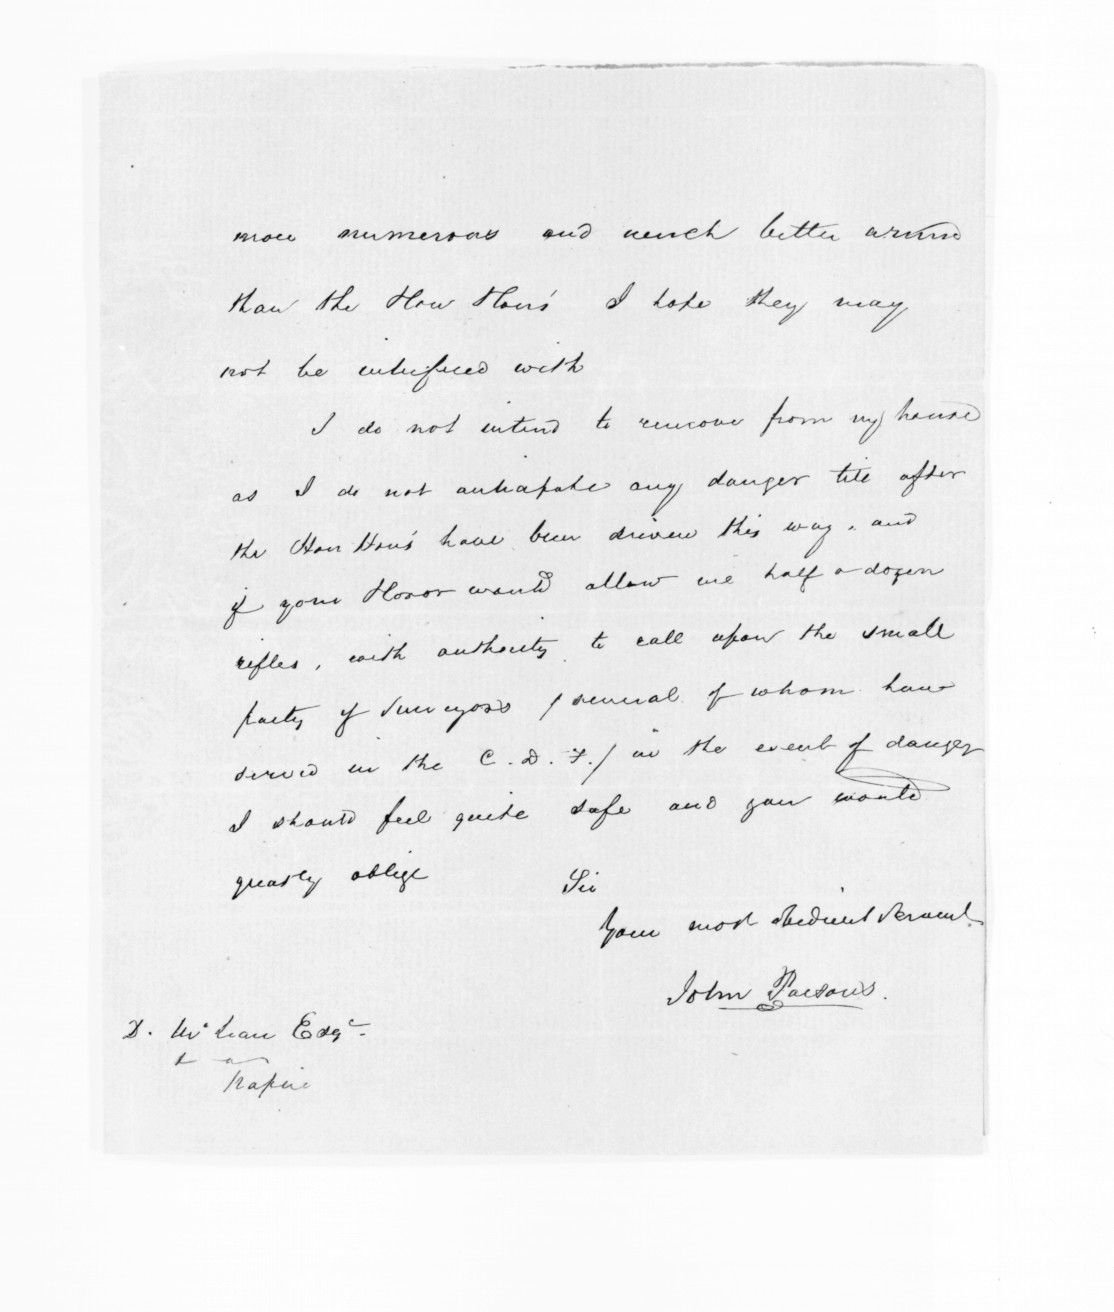 more numerous and much better armed
than the Hau Hau's I hope they may
not be interfered with
I do not intend to remove from my house
as I do not anticipate any danger till after
the Hau Hau's have been driven this way, and
if your Honor would allow me half a dozen
rifles, with authority to call upon the small
party of Surveyors / several of whom have
served in the C. D. F. / in the event of danger
I should feel quite safe and you would
greatly oblige Sir
Your most obedient Servant
John Parsons.
D. McLean Esqre
Napier